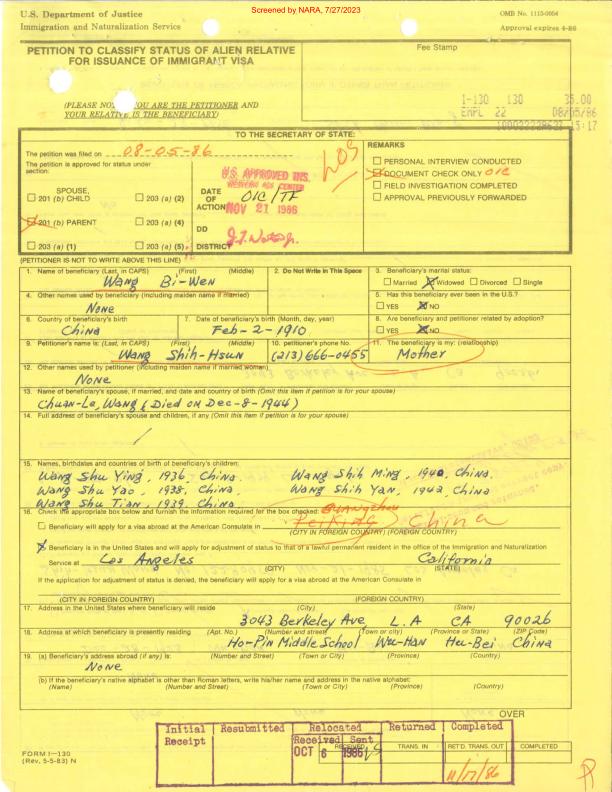 Screened by NARA, 7/27/2023
U.S. Department of Justice
Immigration and Naturalization Service
OMB No. 1115-0054
Approval expires 4-86
PETITION TO CLASSIFY STATUS OF ALIEN RELATIVE
FOR ISSUANCE OF IMMIGRANT VISA
Fee Stamp
(PLEASE NO YOU ARE THE PETITIONER AND
YOUR RELATIVE IS THE BENEFICIARY)
I-130 130 35.00
EMPL 22 08/05/86
15:17
TO THE SECRETARY OF STATE:
The petition was filed on 08-05-86
The petition is approved for status under
section:
SPOUSE,
201 (b) CHILD
203 (a) (2)
201 (b) PARENT
203 (a) (4)
203 (a) (1)
203 (a) (5)
U.S. APPROVED INS.
WESTERN ADJ. CENTER
DATE
OF
ACTION
OIC/TF
NOV 21 1986
DD
DISTRICT
LOS
REMARKS
PERSONAL INTERVIEW CONDUCTED
DOCUMENT CHECK ONLY OIC
FIELD INVESTIGATION COMPLETED
APPROVAL PREVIOUSLY FORWARDED
(PETITIONER IS NOT TO WRITE ABOVE THIS LINE)
1. Name of beneficiary (Last, in CAPS) (First) (Middle)
Wang Bi-Wen
2. Do Not Write In This Space
3. Beneficiary's marital status:
Married Widowed Divorced Single
4. Other names used by beneficiary (including maiden name if married)
None
5. Has this beneficiary ever been in the U.S.?
YES NO
6. Country of beneficiary's birth
China
7. Date of beneficiary's birth (Month, day, year)
Feb-2-1910
8. Are beneficiary and petitioner related by adoption?
YES NO
9. Petitioner's name is: (Last, in CAPS) (First) (Middle)
Wang Shih-Hsun
10. petitioner's phone No.
(213)666-0455
11. The beneficiary is my: (relationship)
Mother
12. Other names used by petitioner (including maiden name if married woman)
None
13. Name of beneficiary's spouse, if married, and date and country of birth (Omit this item if petition is for your spouse)
Chuan-Le, Wang (Died on Dec-8-1944)
14. Full address of beneficiary's spouse and children, if any (Omit this item if petition is for your spouse)
15. Names, birthdates and countries of birth of beneficiary's children:
Wang Shu Ying, 1936, China. Wang Shih Ming, 1940, China.
Wang Shu Yao, 1938, China. Wang Shih Yan, 1942, China
Wang Shu Tian, 1939, China.
16. Check the appropriate box below and furnish the information required for the box checked:
Guangzhou
Beneficiary will apply for a visa abroad at the American Consulate in Peiking China
(CITY IN FOREIGN COUNTRY) (FOREIGN COUNTRY)
Beneficiary is in the United States and will apply for adjustment of status to that of a lawful permanent resident in the office of the Immigration and Naturalization
Service at Los Angeles California
(CITY) (STATE)
If the application for adjustment of status is denied, the beneficiary will apply for a visa abroad at the American Consulate in
(CITY IN FOREIGN COUNTRY) (FOREIGN COUNTRY)
17. Address in the United States where beneficiary will reside (City) (State)
3043 Berkeley Ave, L.A CA 90026
18. Address at which beneficiary is presently residing (Apt. No.) (Number and street) (Town or city) (Province or State) (ZIP Code)
Ho-Pin Middle School Wu-Han Hu-Bei China
19. (a) Beneficiary's address abroad (if any) is: (Number and Street) (Town or City) (Province) (Country)
None
(b) If the beneficiary's native alphabet is other than Roman letters, write his/her name and address in the native alphabet:
(Name) (Number and Street) (Town or City) (Province) (Country)
OVER
Initial Receipt
Resubmitted
Relocated
Received Sent
Returned
Completed
OCT 6 1986
RECEIVED
TRANS. IN
RET'D. TRANS. OUT
COMPLETED
11/17/86
FORM I-130
(Rev. 5-5-83) N